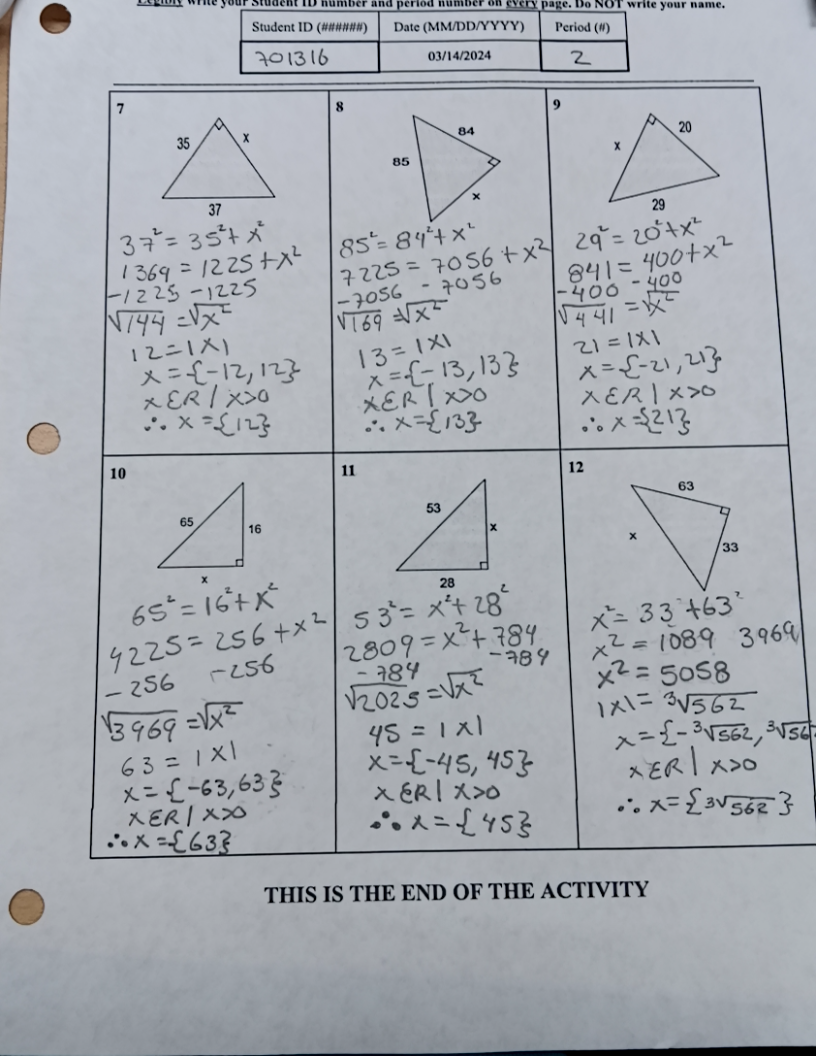 Legibly write your Student ID number and period number on every page. Do NOT write your name.
Student ID (######) Date (MM/DD/YYYY) Period (#)
701316 03/14/2024 2
7
35 x
37
37² = 35² + x²
1369 = 1225 + x²
-1225 -1225
√144 = √x²
12 = |x|
x = {-12, 12}
x ε R | x>0
∴ x = {12}
8
84
85
x
85² = 84² + x²
7225 = 7056 + x²
-7056 - 7056
√169 = √x²
13 = |x|
x = {-13, 13}
x ε R | x>0
∴ x = {13}
9
20
x
29
29² = 20² + x²
841 = 400 + x²
-400 -400
√441 = √x²
21 = |x|
x = {-21, 21}
x ε R | x>0
∴ x = {21}
10
65 16
x
65² = 16² + x²
4225 = 256 + x²
-256 -256
√3969 = √x²
63 = |x|
x = {-63, 63}
x ε R | x>0
∴ x = {63}
11
53
x
28
53² = x² + 28²
2809 = x² + 784
-784 -784
√2025 = √x²
45 = |x|
x = {-45, 45}
x ε R | x>0
∴ x = {45}
12
63
x
33
x² = 33² + 63²
x² = 1089 3969
x² = 5058
|x| = 3√562
x = {-3√562, 3√562
x ε R | x>0
∴ x = {3√562}
THIS IS THE END OF THE ACTIVITY